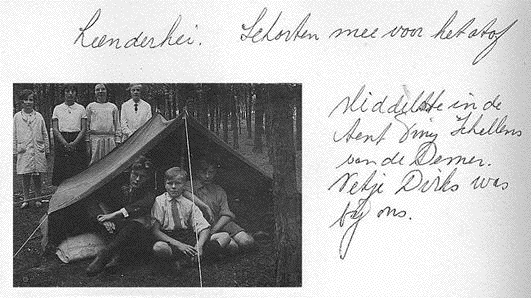 Leenderhei. Schorten mee voor het stof
Middelste in de
tent Piny Schellens
van de Demer.
Netje Dirks was
bij ons.